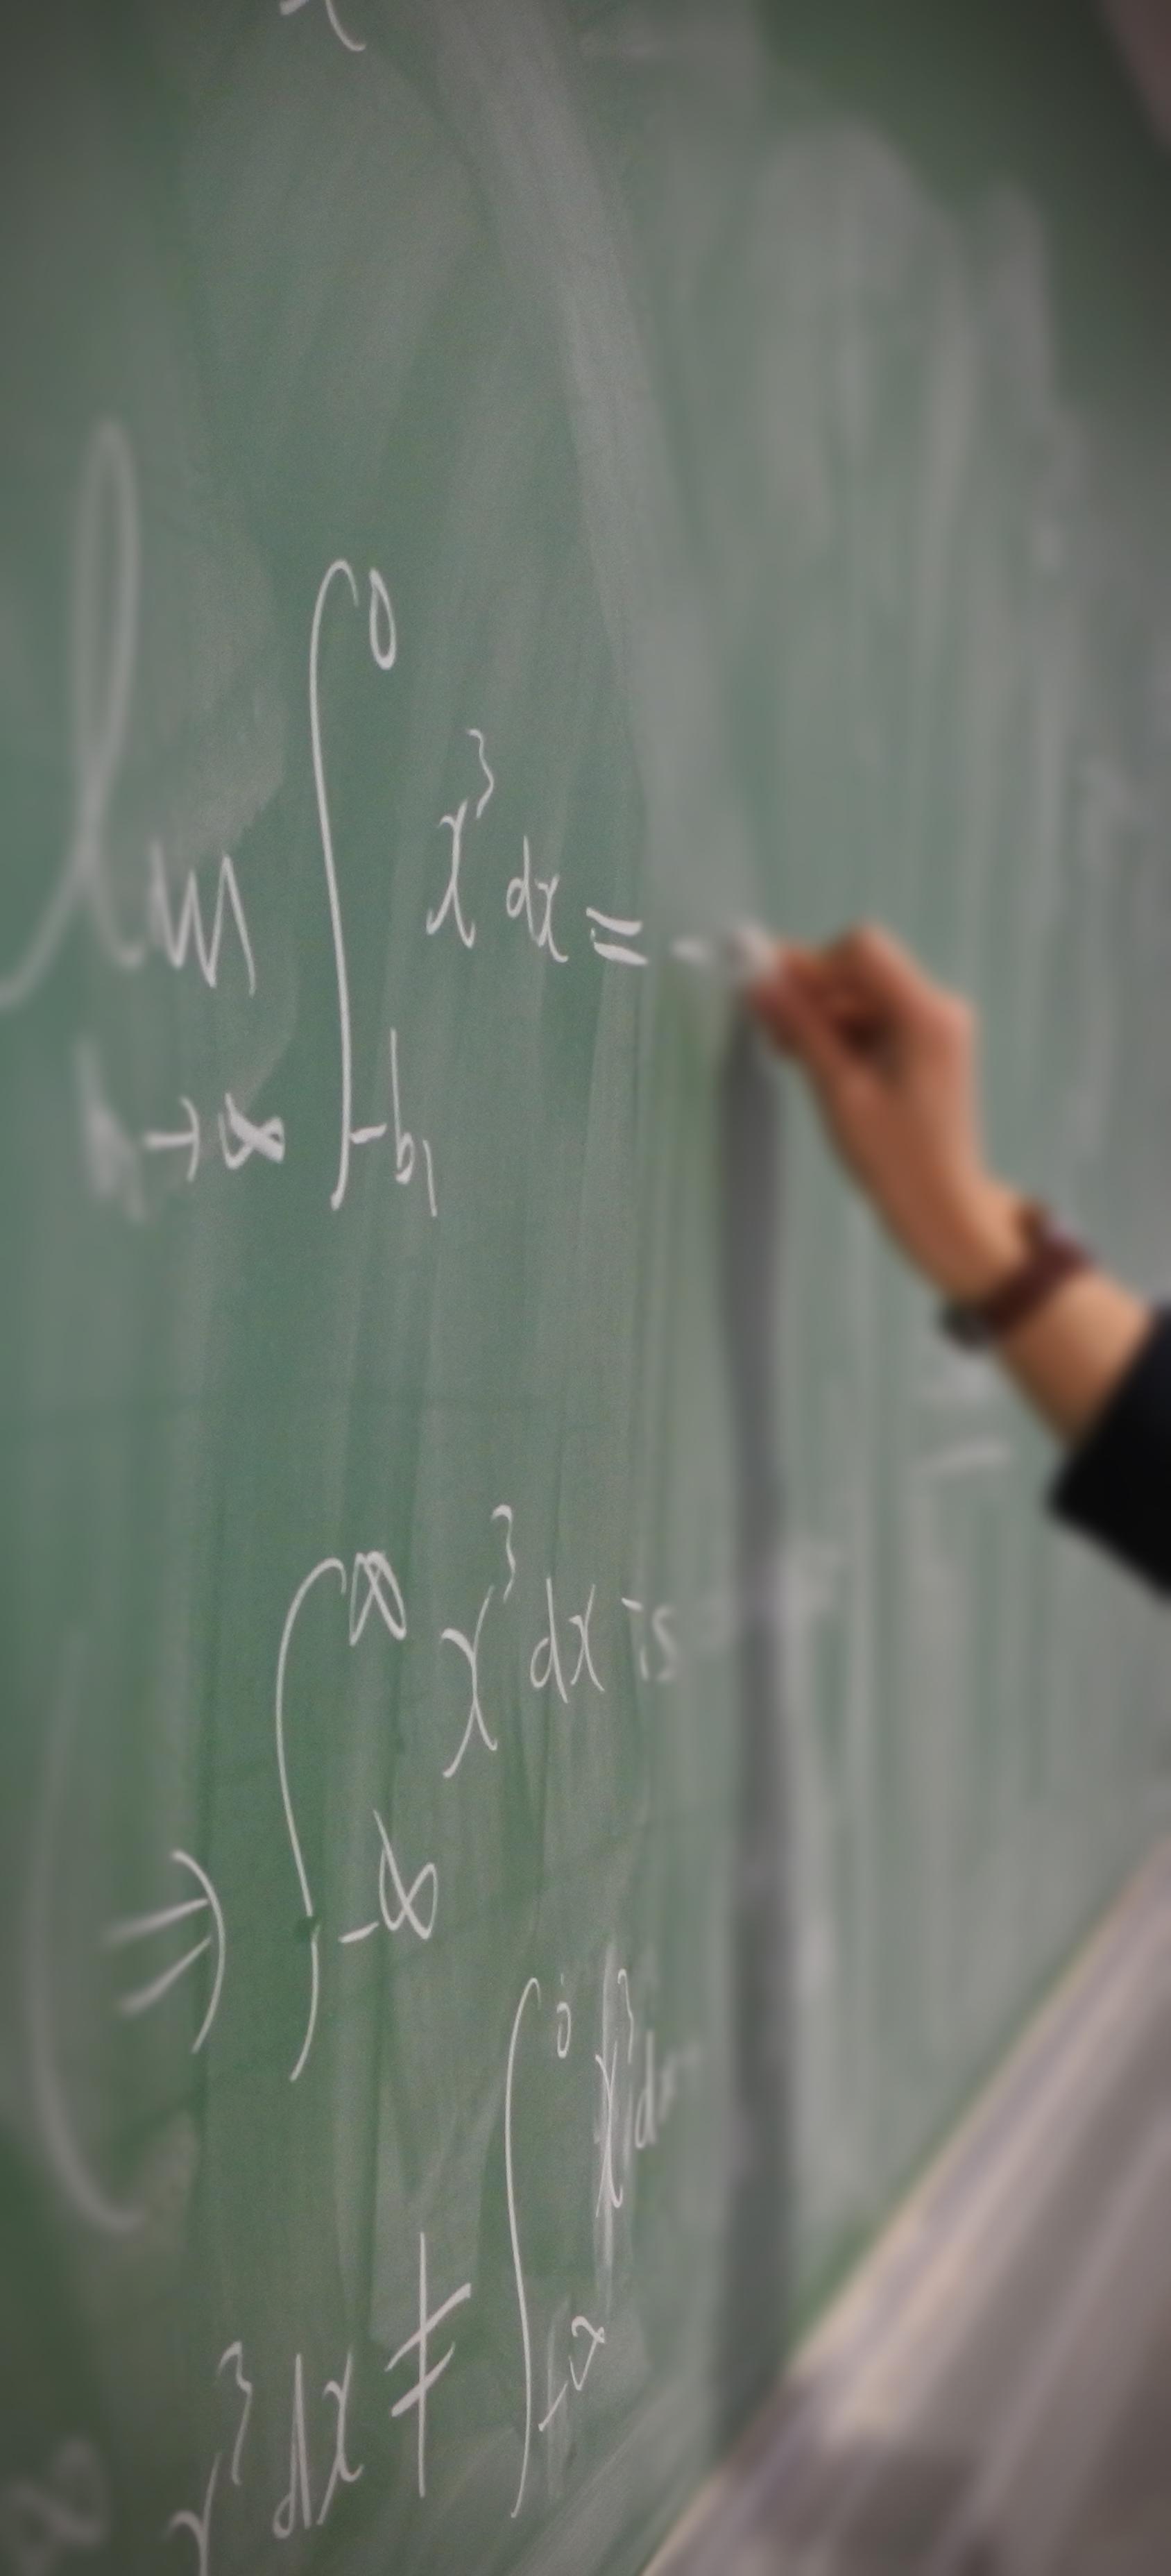 lim ∫₋b₁⁰ x³ dx = -
b₁→∞
⇒ ∫₋∞^∞ x³ dx is
x³ dx ≠ ∫₋∞⁰ x³ dx